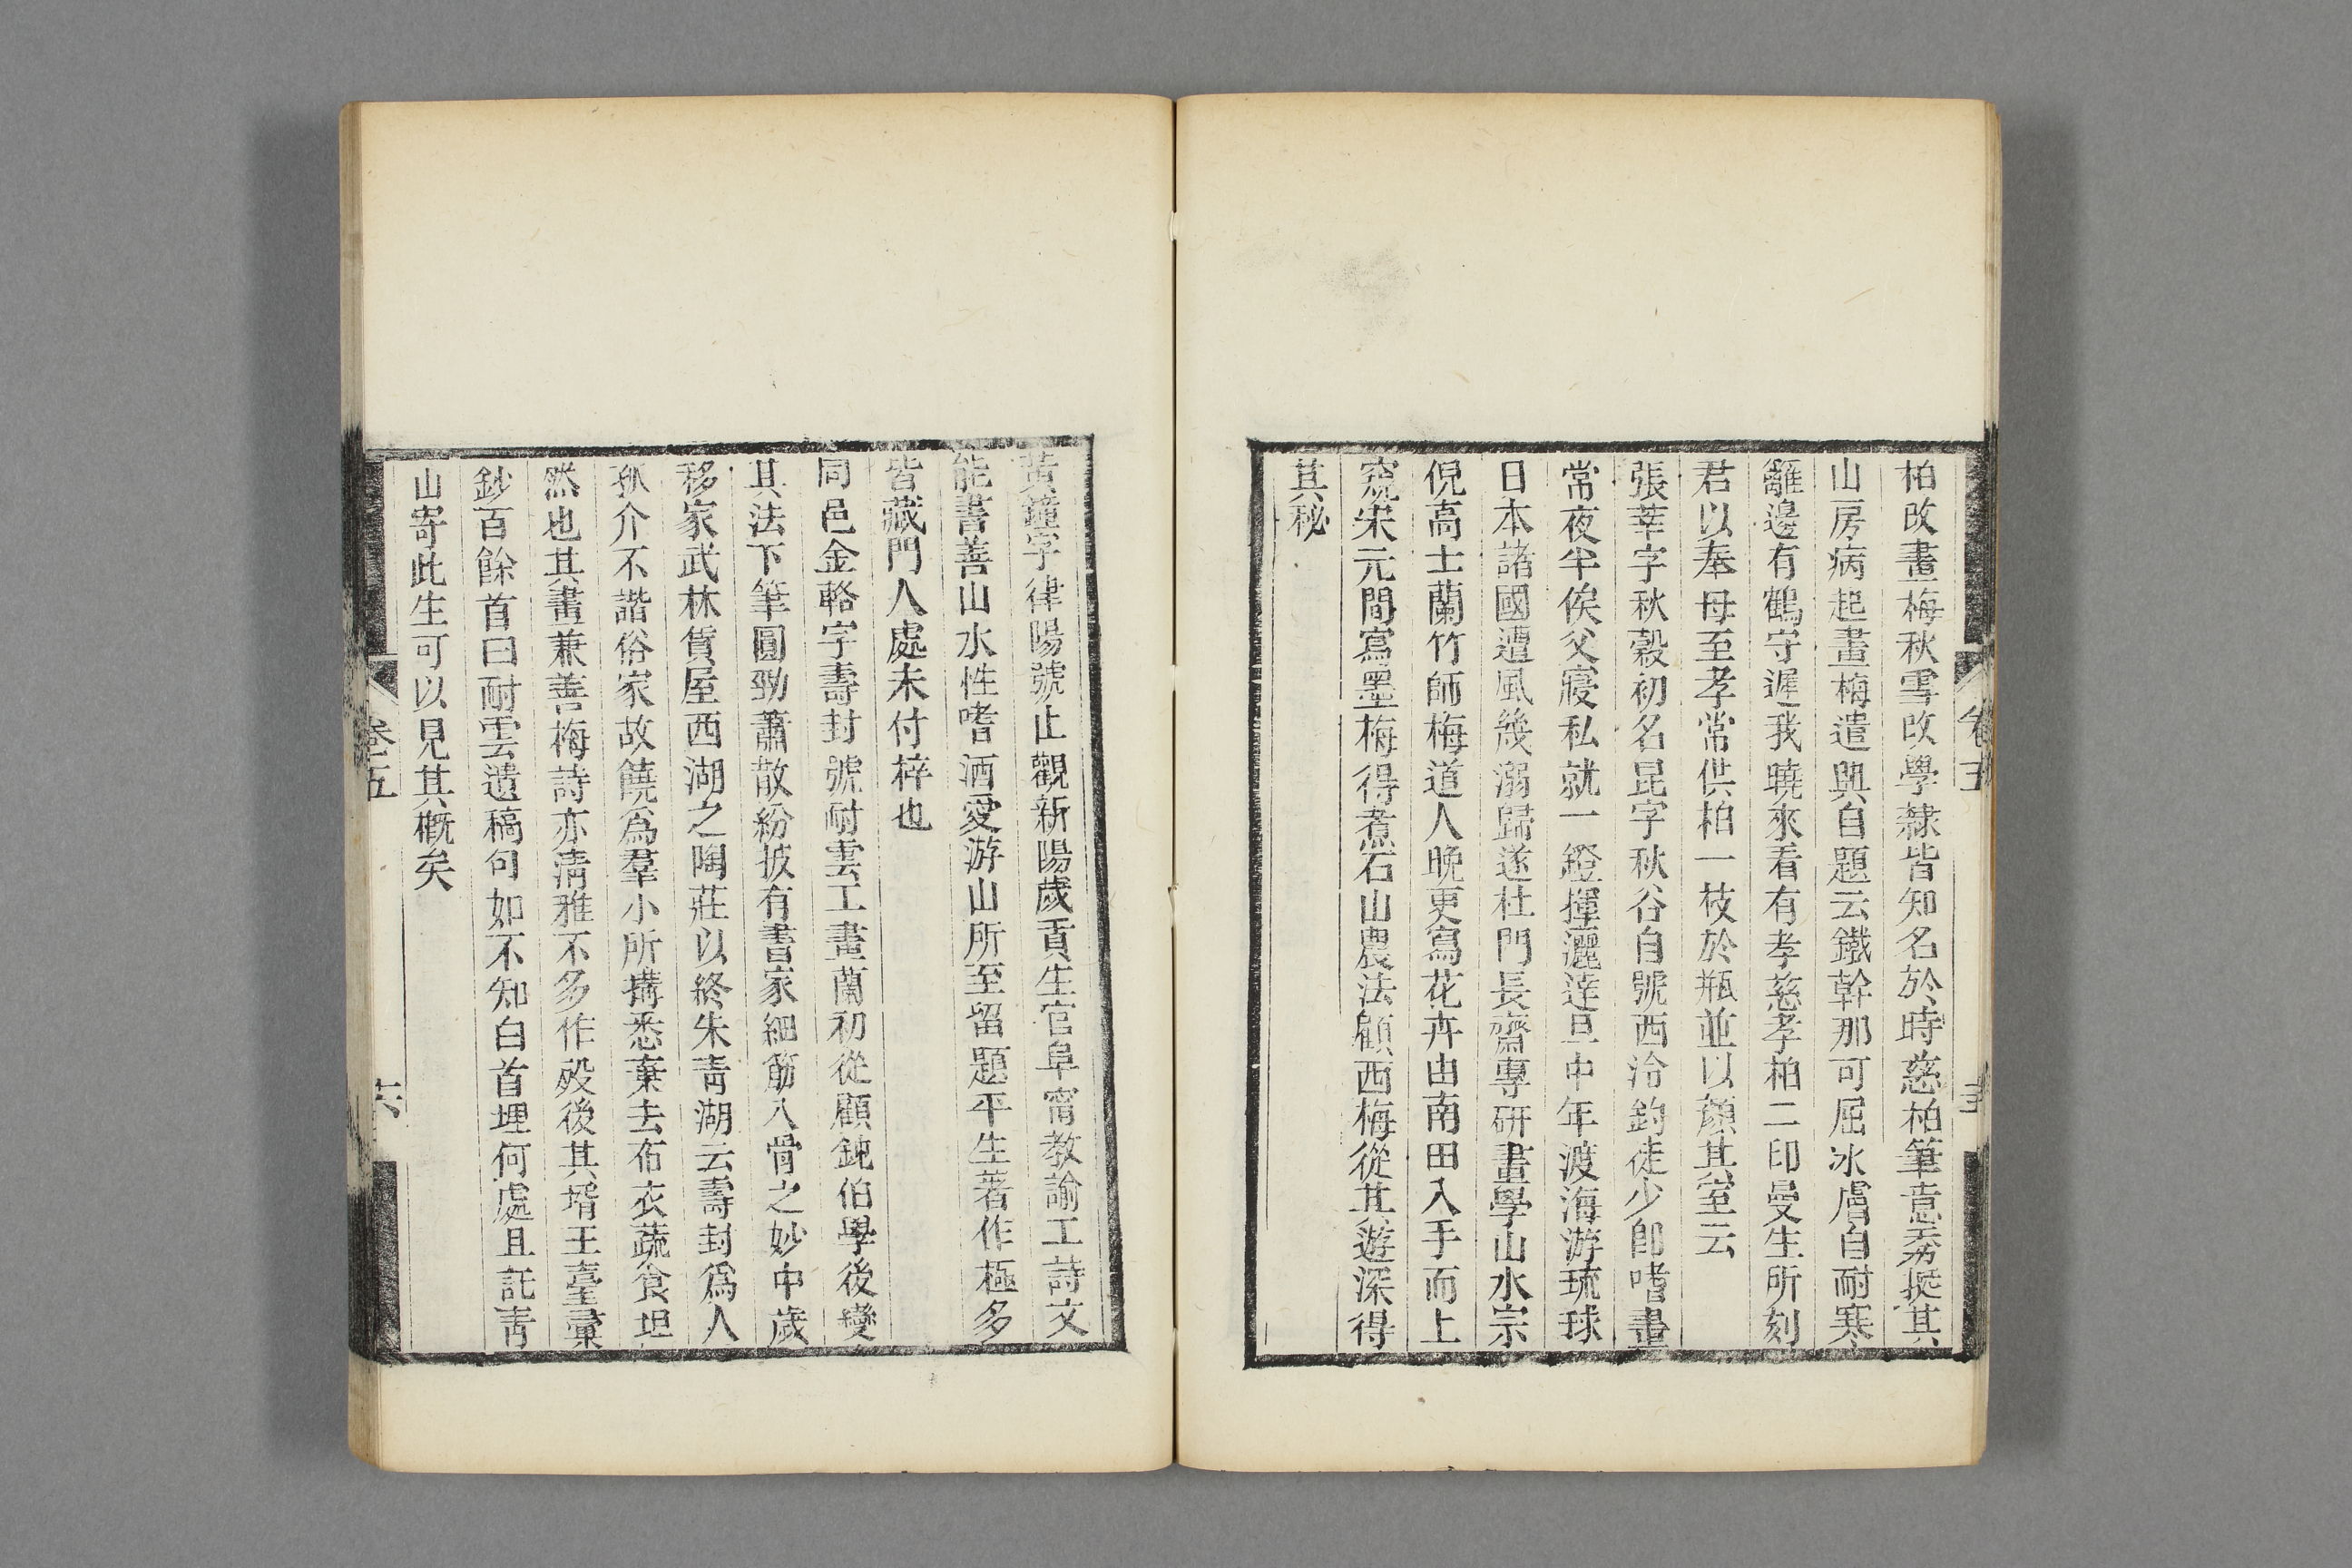 柏改畫梅秋雪改學隸皆知名於時慈柏筆意秀挺其
山房病起畫梅遣興自題云鐵幹那可屈冰膚自耐寒
籬邊有鶴守遲我曉來看有孝慈孝柏二印曼生所刻
君以奉母至孝常供柏一枝於瓶並以顏其室云
張莘字秋穀初名昆字秋谷自號西冷釣徒少卽嗜畫
常夜半俟父寢私就一鐙揮灑達旦中年渡海游琉球
日本諸國遭風幾溺歸遂杜門長齋專硏畫學山水宗
倪高士蘭竹師梅道人晚更寫花卉由南田入手而上
窺宋元間寫墨梅得煮石山農法顧西梅從其遊深得
其秘
黃鐘字律陽號止觀新陽歲貢生官阜甯教諭工詩文
能書善山水性嗜酒愛游山所至留題平生著作極多
皆藏門人處未付梓也
同邑金輅字壽封號耐雲工畫蘭初從顧鈍伯學後變
其法下筆圓勁蕭散紛披有書家細筋入骨之妙中歲
移家武林賃屋西湖之陶莊以終朱靑湖云壽封爲人
孤介不諧俗家故饒爲羣小所搆悉棄去布衣蔬食坦
然也其畫兼善梅詩亦淸雅不多作歿後其壻王臺彙
鈔百餘首曰耐雲遺稿句如不知白首埋何處且託靑
山寄此生可以見其槪矣
卷五
六